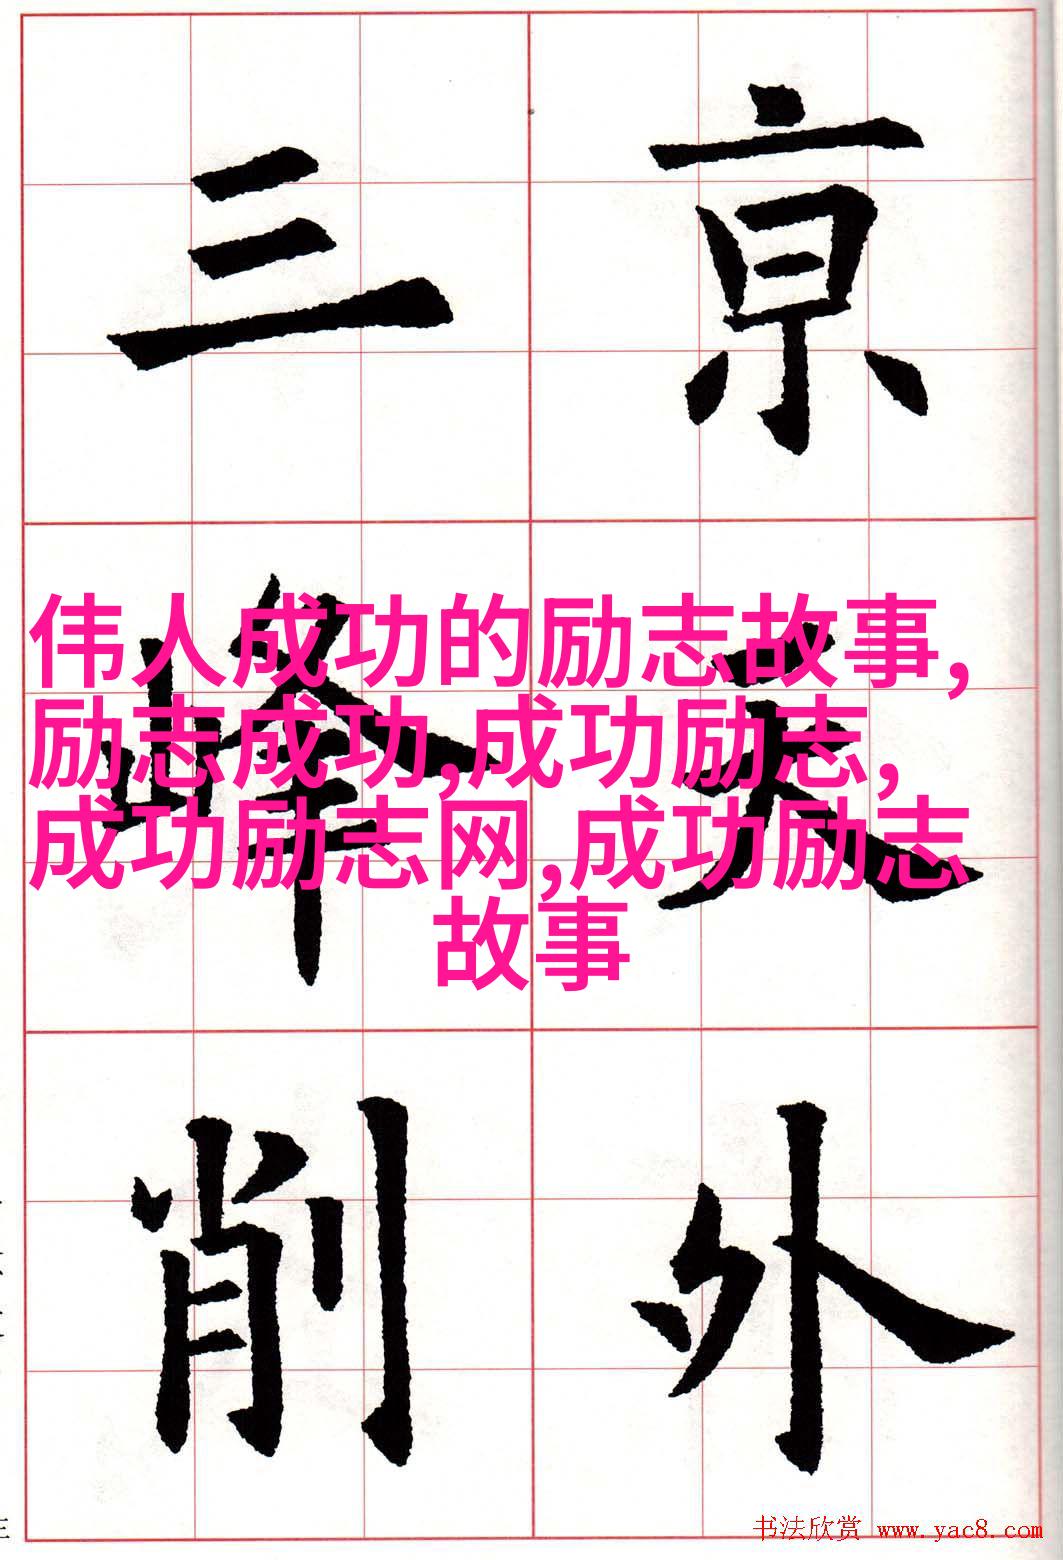 亰天外
三峰削
伟人成功的励志故事,
励志成功,成功励志,
成功励志网,成功励志
故事
书法欣赏 www.yac8.com